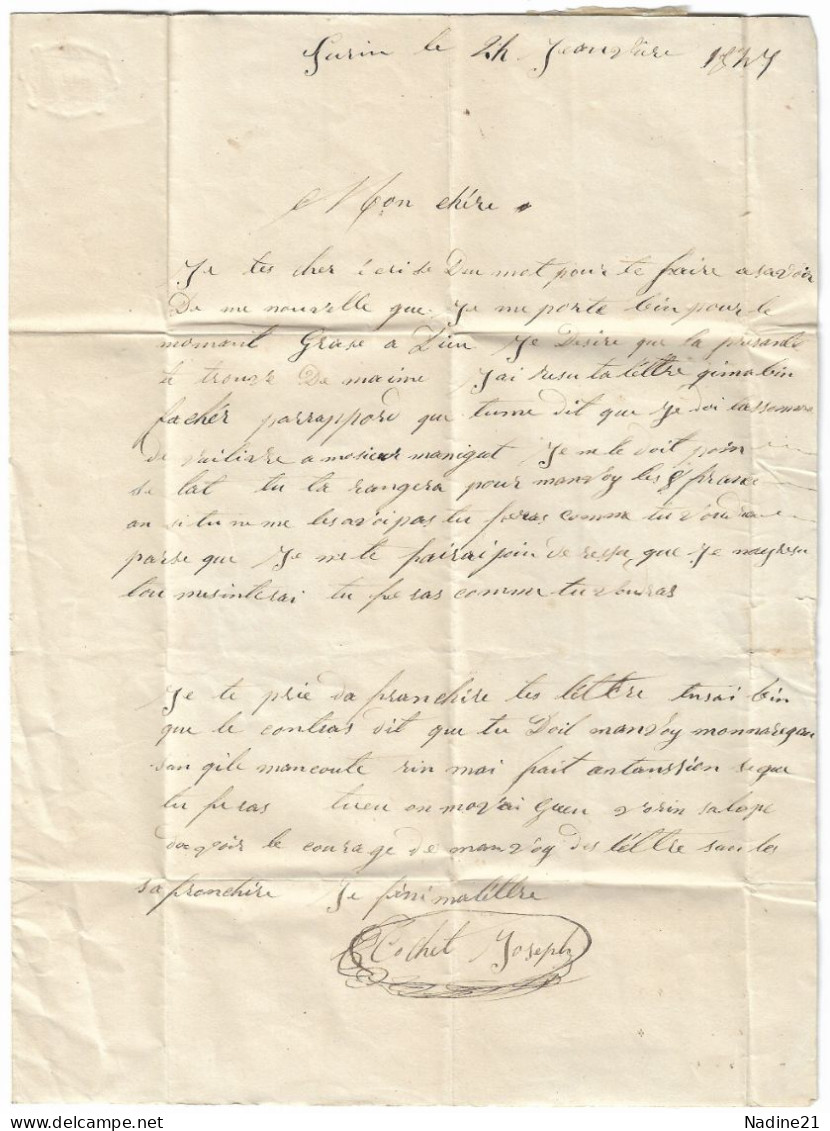 le 24 Jeanvière 1847
Mon chére
Je tes cher i'cri se Deu mot pour te faire a savoir
De me nouvelle que Je me porte bin pour le
momant Grase a Dieu Je Desire que la présante
te trouve De maime J'ai resu ta léttre qi ma bin
facher parrappord que tu me dit que Je doi la somme
de a mosieur manigat Je ne le doit poin
se lat tu ta rangera pour manvoy les francs
ou si tu ne me les avoi pas tu feras comme tu voudra
parse que Je ne te fairai poin de resu que Je nay resu
tou mes intérai tu feras comme tu vouras
Je te prie da franchire tes léttre tu sai bin
que le contras dit que tu Doit manvoy monnargan
san qi le mancoute rin mai fait antanssien se que
tu feras tu eu on movai salope
davoir le courage de manvoy des léttre san les
s a franchire Je fini ma léttre
Cochet Joseph
Nadine21